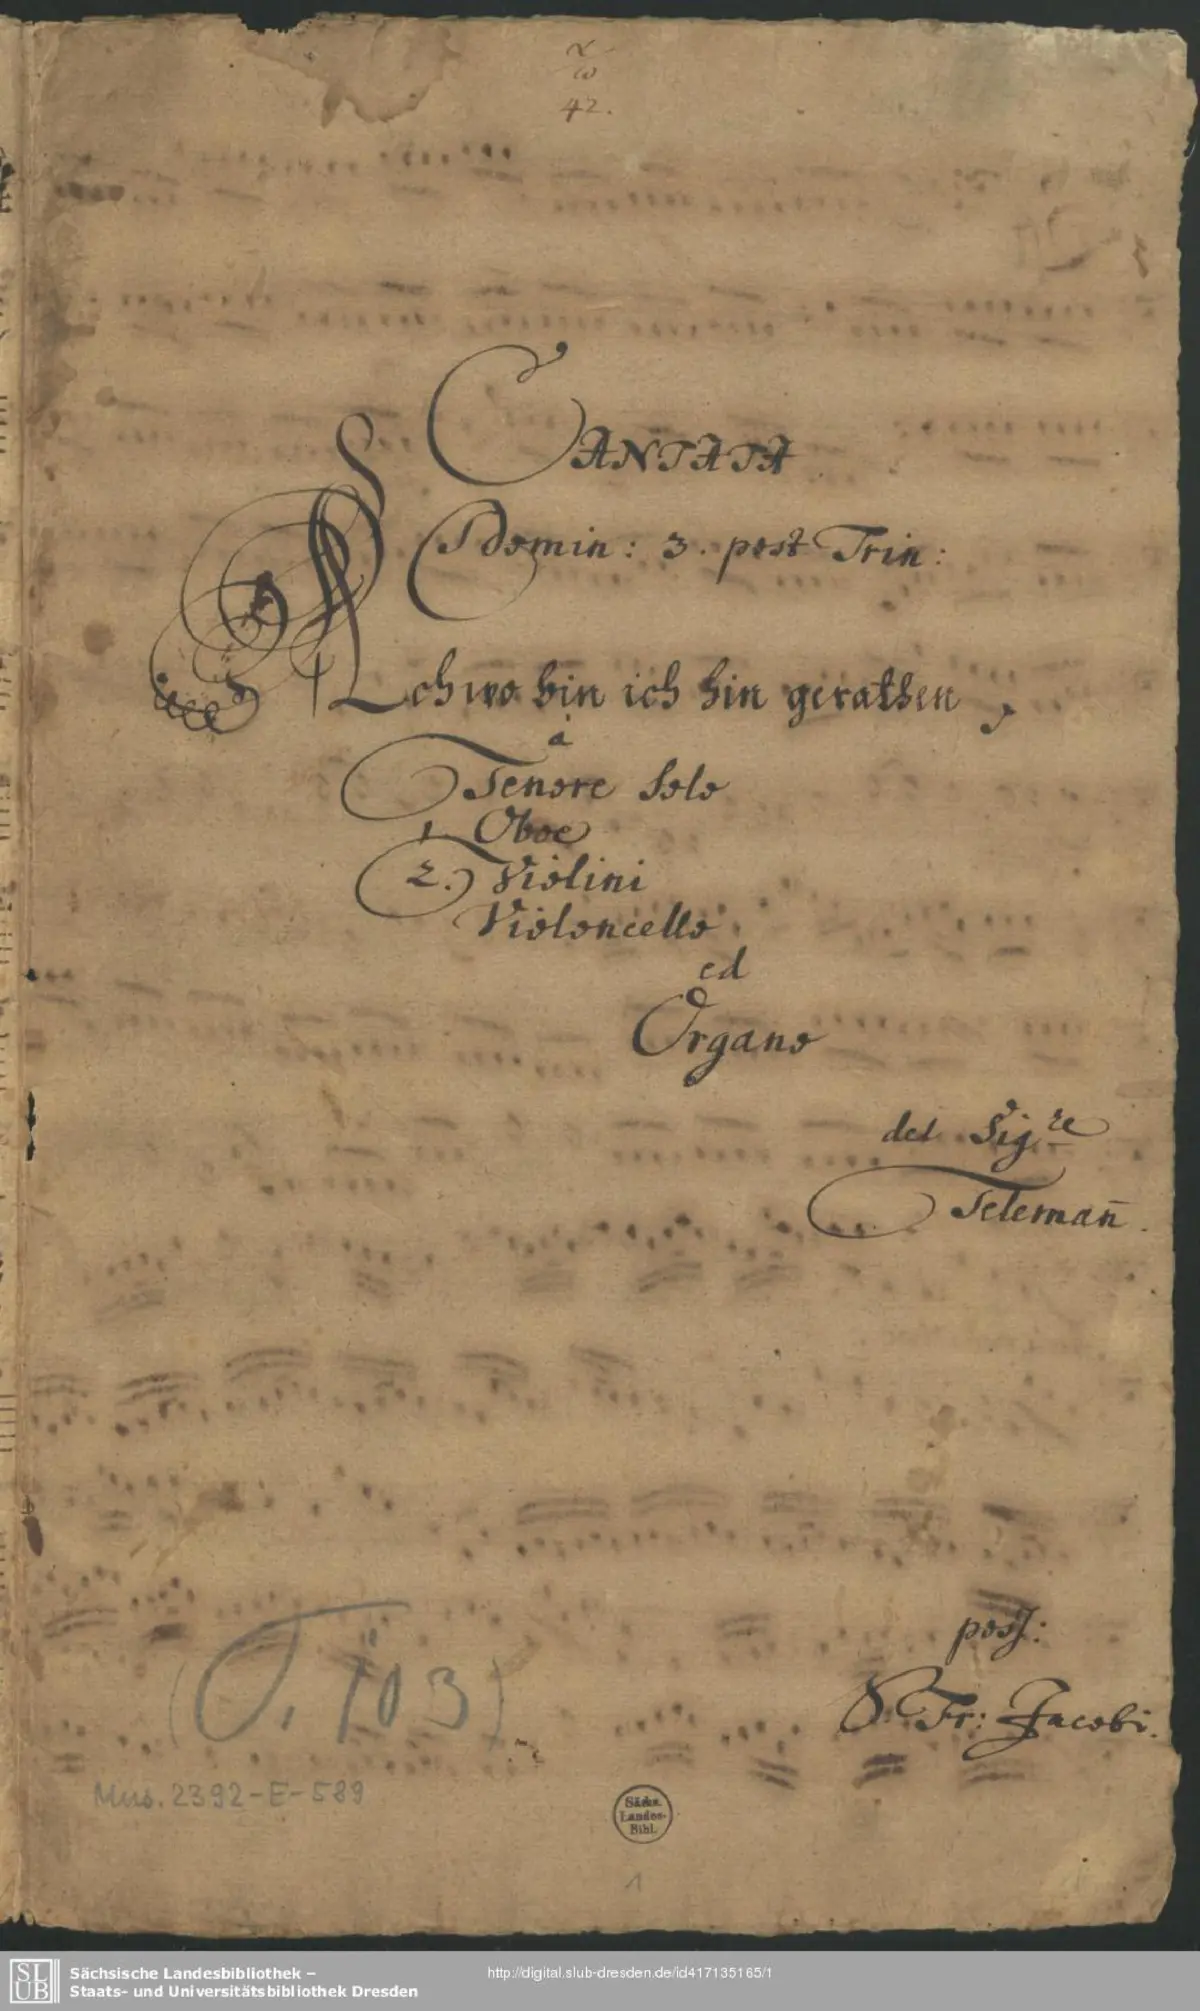 α
ω
42.
CANTATA
Domin: 3. post Trin:
Ach wo bin ich hin gerathen,
à
Tenore Solo
1 Oboe
2. Violini
Violoncello
ed
Organo
del Sig.re
Teleman̄.
poss:
S. Fr: Jacobi.
(T. 103)
Mus. 2392-E-589
Sächs.
Landes-
Bibl.
1
SLUB
Sächsische Landesbibliothek –
Staats- und Universitätsbibliothek Dresden
http://digital.slub-dresden.de/id417135165/1